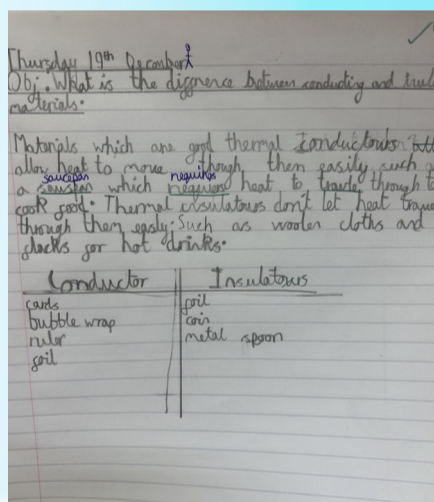 Thursday 19th December
Obj: What is the dignerence between conducting and
materials.
Materials which are good thermal conductours
allow heat to move though them easily such
saucepan neguires
a which neguiers heat to travel through to
cook good. Thermal insulatours don't let heat
through them easly. Such as woolen cloths and
glasks gor hot drinks.
Conductor Insulatours
cards goil
bubble wrap coin
ruler metal spoon
goil